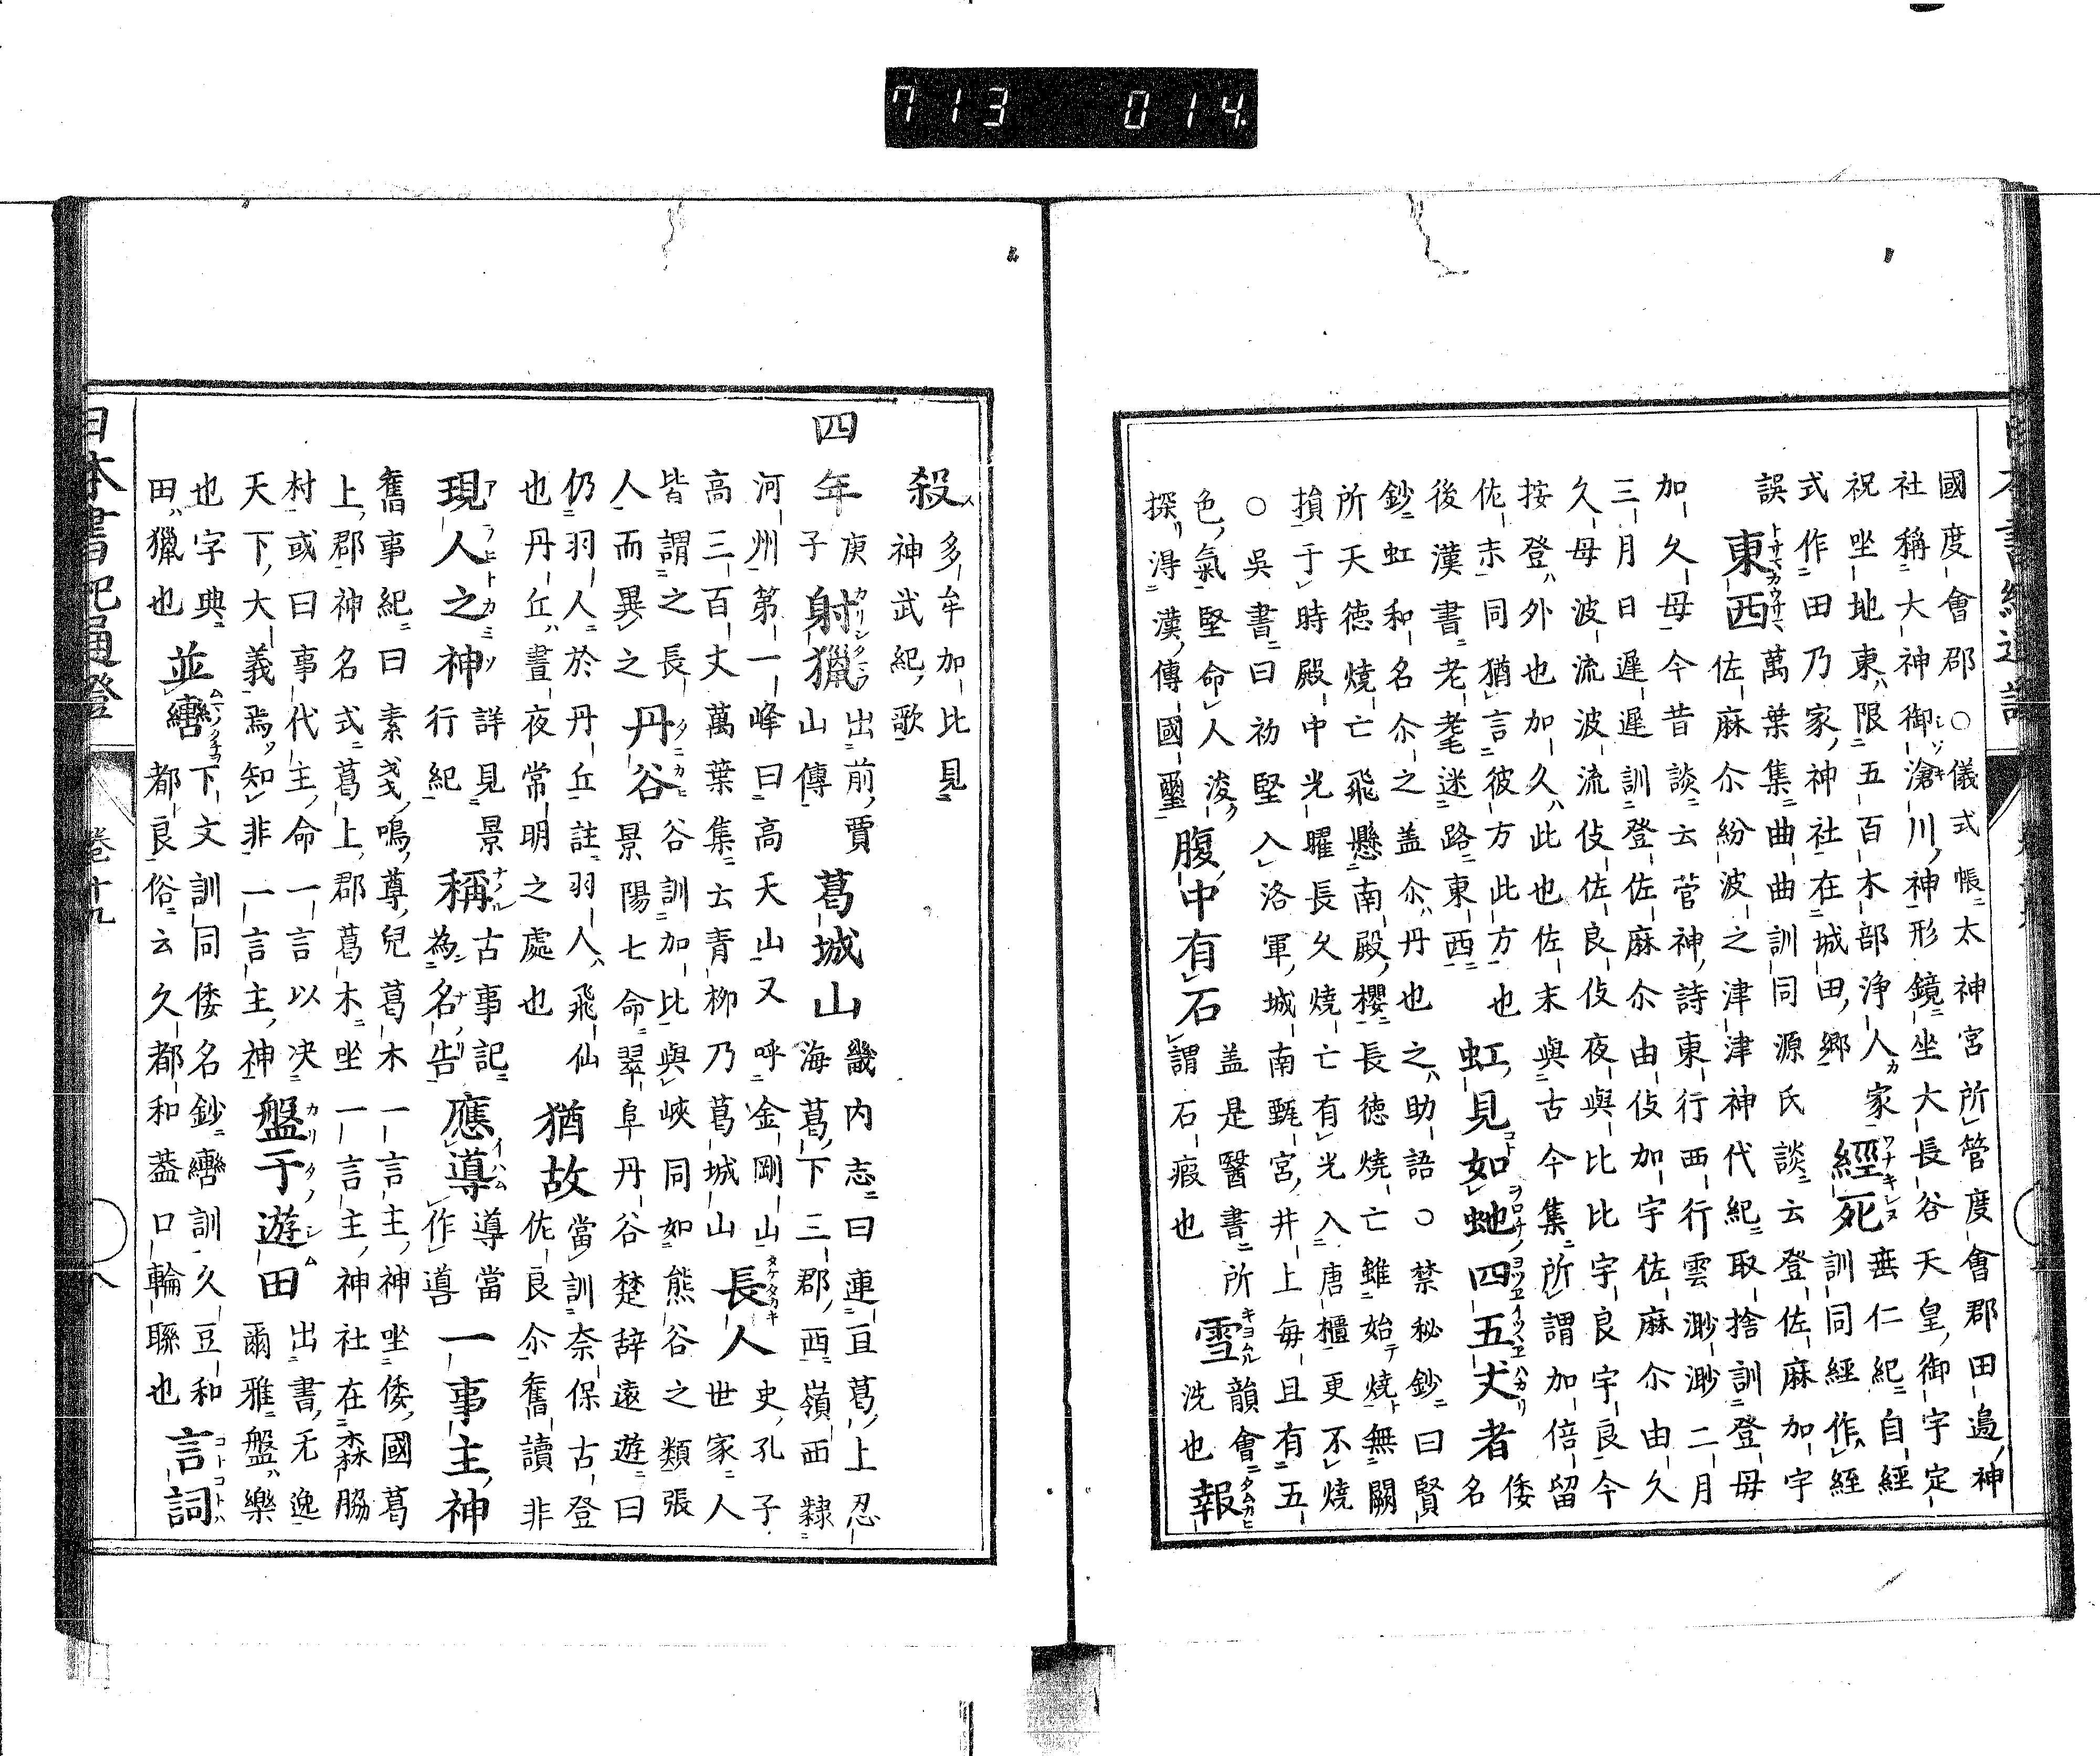 713 014
國度會郡○儀式帳太神宮所管度會郡田邉神
社稱大神御滄川神形鏡坐大長谷天皇御宇定
祝坐地東限五百木部淨人家 經死 垂仁紀自經
式作田乃家神社在城田郷 訓同經作絰
誤 東西 萬葉集曲曲訓同源氏談云登佐麻加宇
佐麻尒紛波之津津神代紀取捨訓登毋
加久母今昔談云菅神詩東行西行雲渺渺二月
三月日遲遲訓登佐麻尒由伎加宇佐麻尒由久
久母波流波流伎佐良伎夜與比比宇良宇良今
按登外也加久此也佐末與古今集所謂加倍留
佐末同猶言彼方此方也 虹見如虵四五丈者 倭名
後漢書老耄迷路東西
鈔虹和名尒之盖尒丹也之助語○禁秘鈔曰賢
所天徳燒亡飛懸南殿櫻長徳燒亡雖始燒無闕
損于時殿中光曜長久燒亡有光入唐櫃更不燒
○吳書曰初堅入洛軍城南甄宮井上毎且有五
色氣堅命人浚 盖是醫書所 雪 韻會
探淂漢傳國璽 腹中有石 謂石瘕也 洗也 報
殺 多牟加比見
神武紀歌
四年 庚子 射獵 出前賈山傳 葛城山 畿内志曰連亘葛上忍
海葛下三郡西嶺西隷
河州第一峰曰高天山又呼金剛山 長人 史孔子世家人
高三百丈萬葉集云青柳乃葛城山
皆謂之長 谷訓加比與峽同如熊谷之類張
人而異之 丹谷 景陽七命翠阜丹谷楚辞遠遊曰
仍羽人於丹丘註羽人飛仙 猶故 當訓奈保古登
也丹丘晝夜常明之處也 佐良尒奮讀非
現人之神 詳見景行紀 稱為名告 古事記 應導 導當作䆃 一事主神
舊事紀曰素戔鳴尊兒葛木一言主神坐倭國葛
上郡神名式葛上郡葛木坐一言主神社在森脇
村或曰事代主命一言以决 盤于遊田 出書无逸
天下大義焉知非一言主神 爾雅盤樂
也字典 並轡 下文訓同倭名鈔轡訓久豆和 言詞
田獵也 都良俗云久都和葢口輪聮也
日本書紀通證 卷十九 八